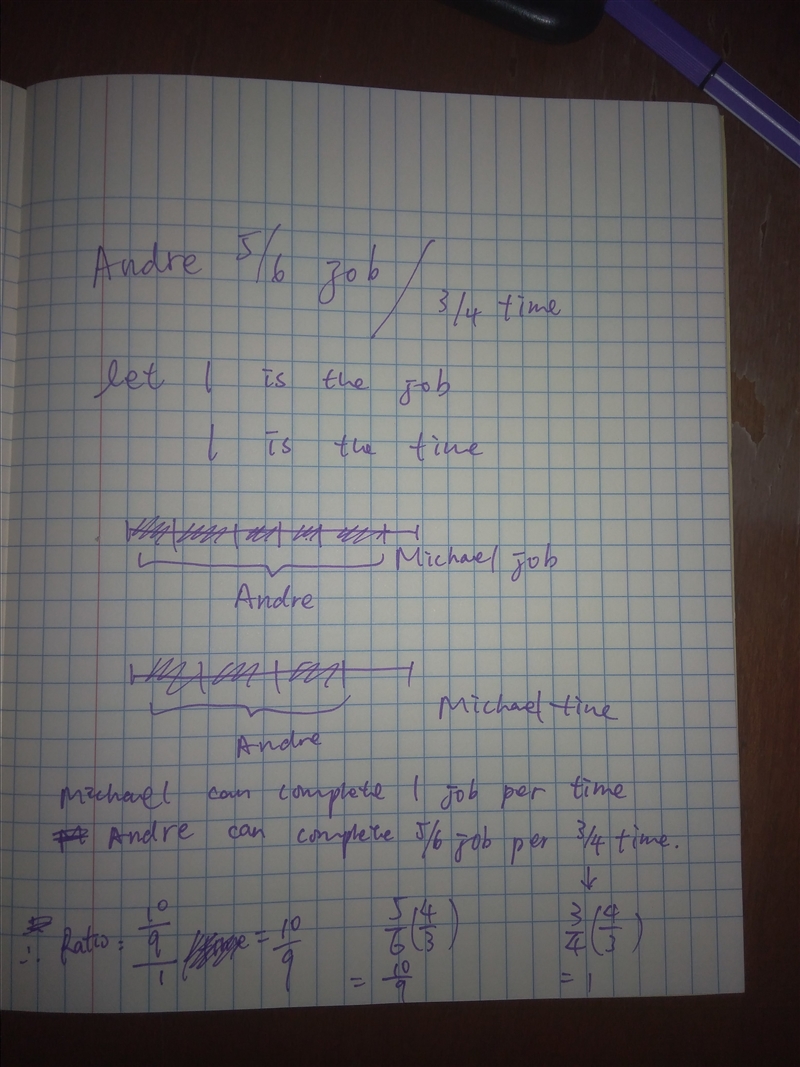 Andre 5/6 job / 3/4 time
let 1 is the job
1 is the time
Michael job
Andre
Michael time
Andre
Michael can complete 1 job per time
Andre can complete 5/6 job per 3/4 time.
↓
∴ Ratio = 10/9 / 1 = 10/9 5/6 (4/3) 3/4 (4/3)
= 10/9 = 1